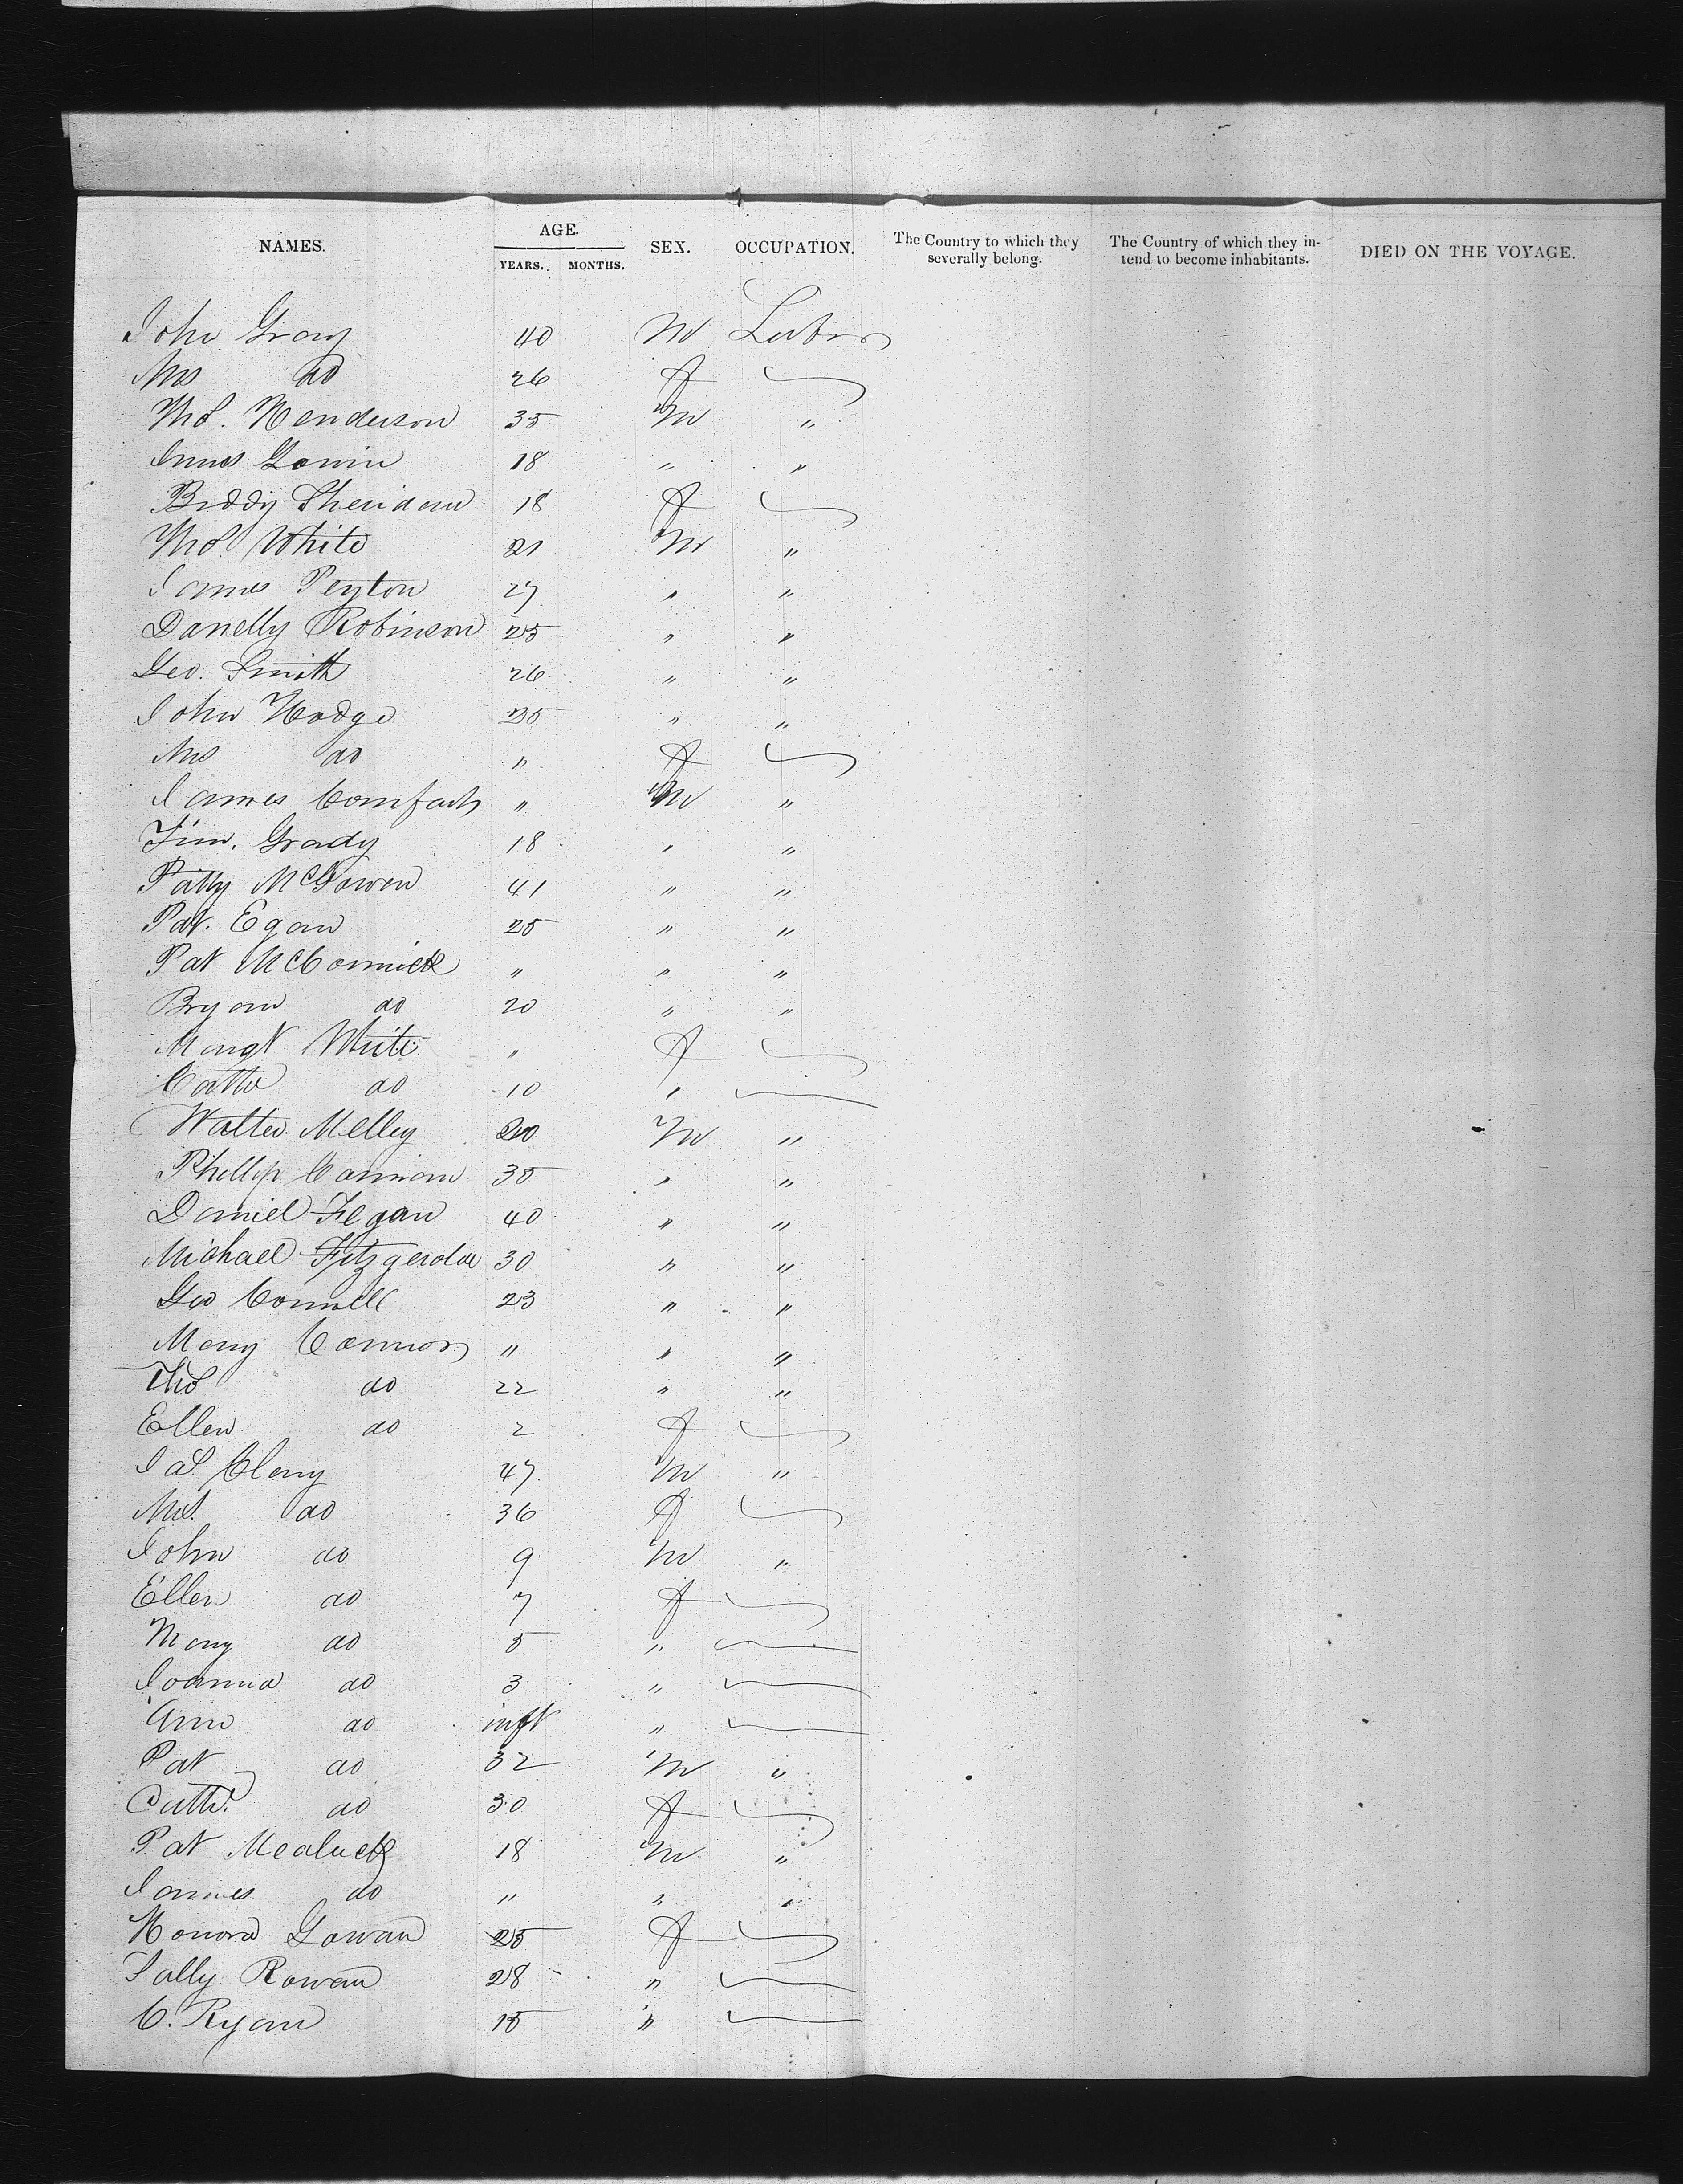 NAMES. AGE. YEARS. MONTHS. SEX. OCCUPATION. The Country to which they severally belong. The Country of which they intend to become inhabitants. DIED ON THE VOYAGE.
John Gray 40 M Labor
Mrs do 26 F
Thos. Henderson 35 M "
18 " "
Biddy Sheridan 18 F
Thos White 21 M "
James Peyton 27 " "
Danelly Robinson 25 " "
Geo. Smith 26 " "
John Hodge 35 " "
Mrs do " F
James " M "
Tim. Grady 18 " "
Patty McGowen 41 " "
Pat. Egan 25 " "
Pat McCormick " " "
Bryan do 20 " "
Margt White " F
Cathe do 10 "
Walter Melley 20 M "
Phillip Cannian 35 " "
Daniel Fegan 40 " "
Michael Fitzgerald 30 " "
Geo Connell 23 " "
Mary Connors " " "
Thos do 22 " "
Ellen do 2 F
Jas. Cleary 47 M "
Mrs. do 36 F
John do 9 M "
Ellen do 7 F
Mary do 5 "
Joanna do 3 "
Ann do inft "
Pat do 32 M "
Cathe. do 30 F
Pat Mealuck 18 M "
James do " " "
Honora Gowan 25 F
Sally Rowan 28 "
C. Ryan 15 "